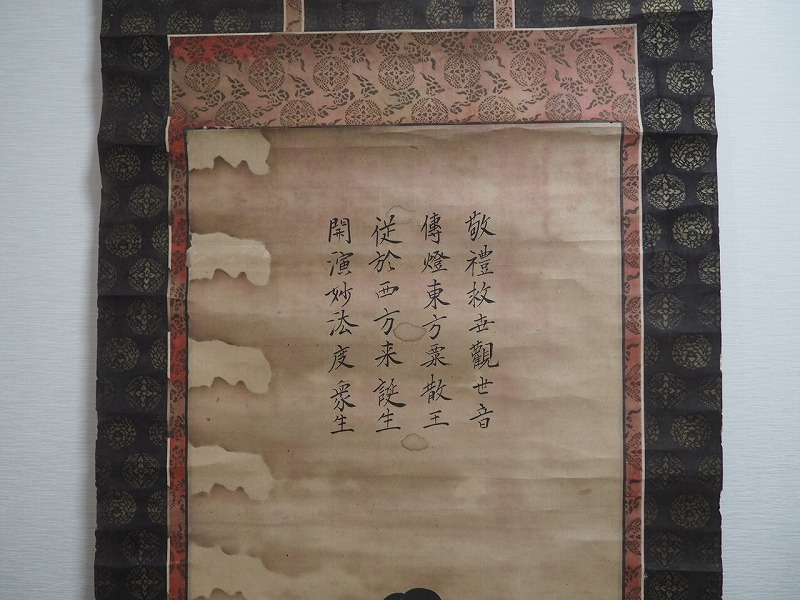 敬禮救世觀世音
傳燈東方粟散王
従於西方来誕生
開演妙法度衆生